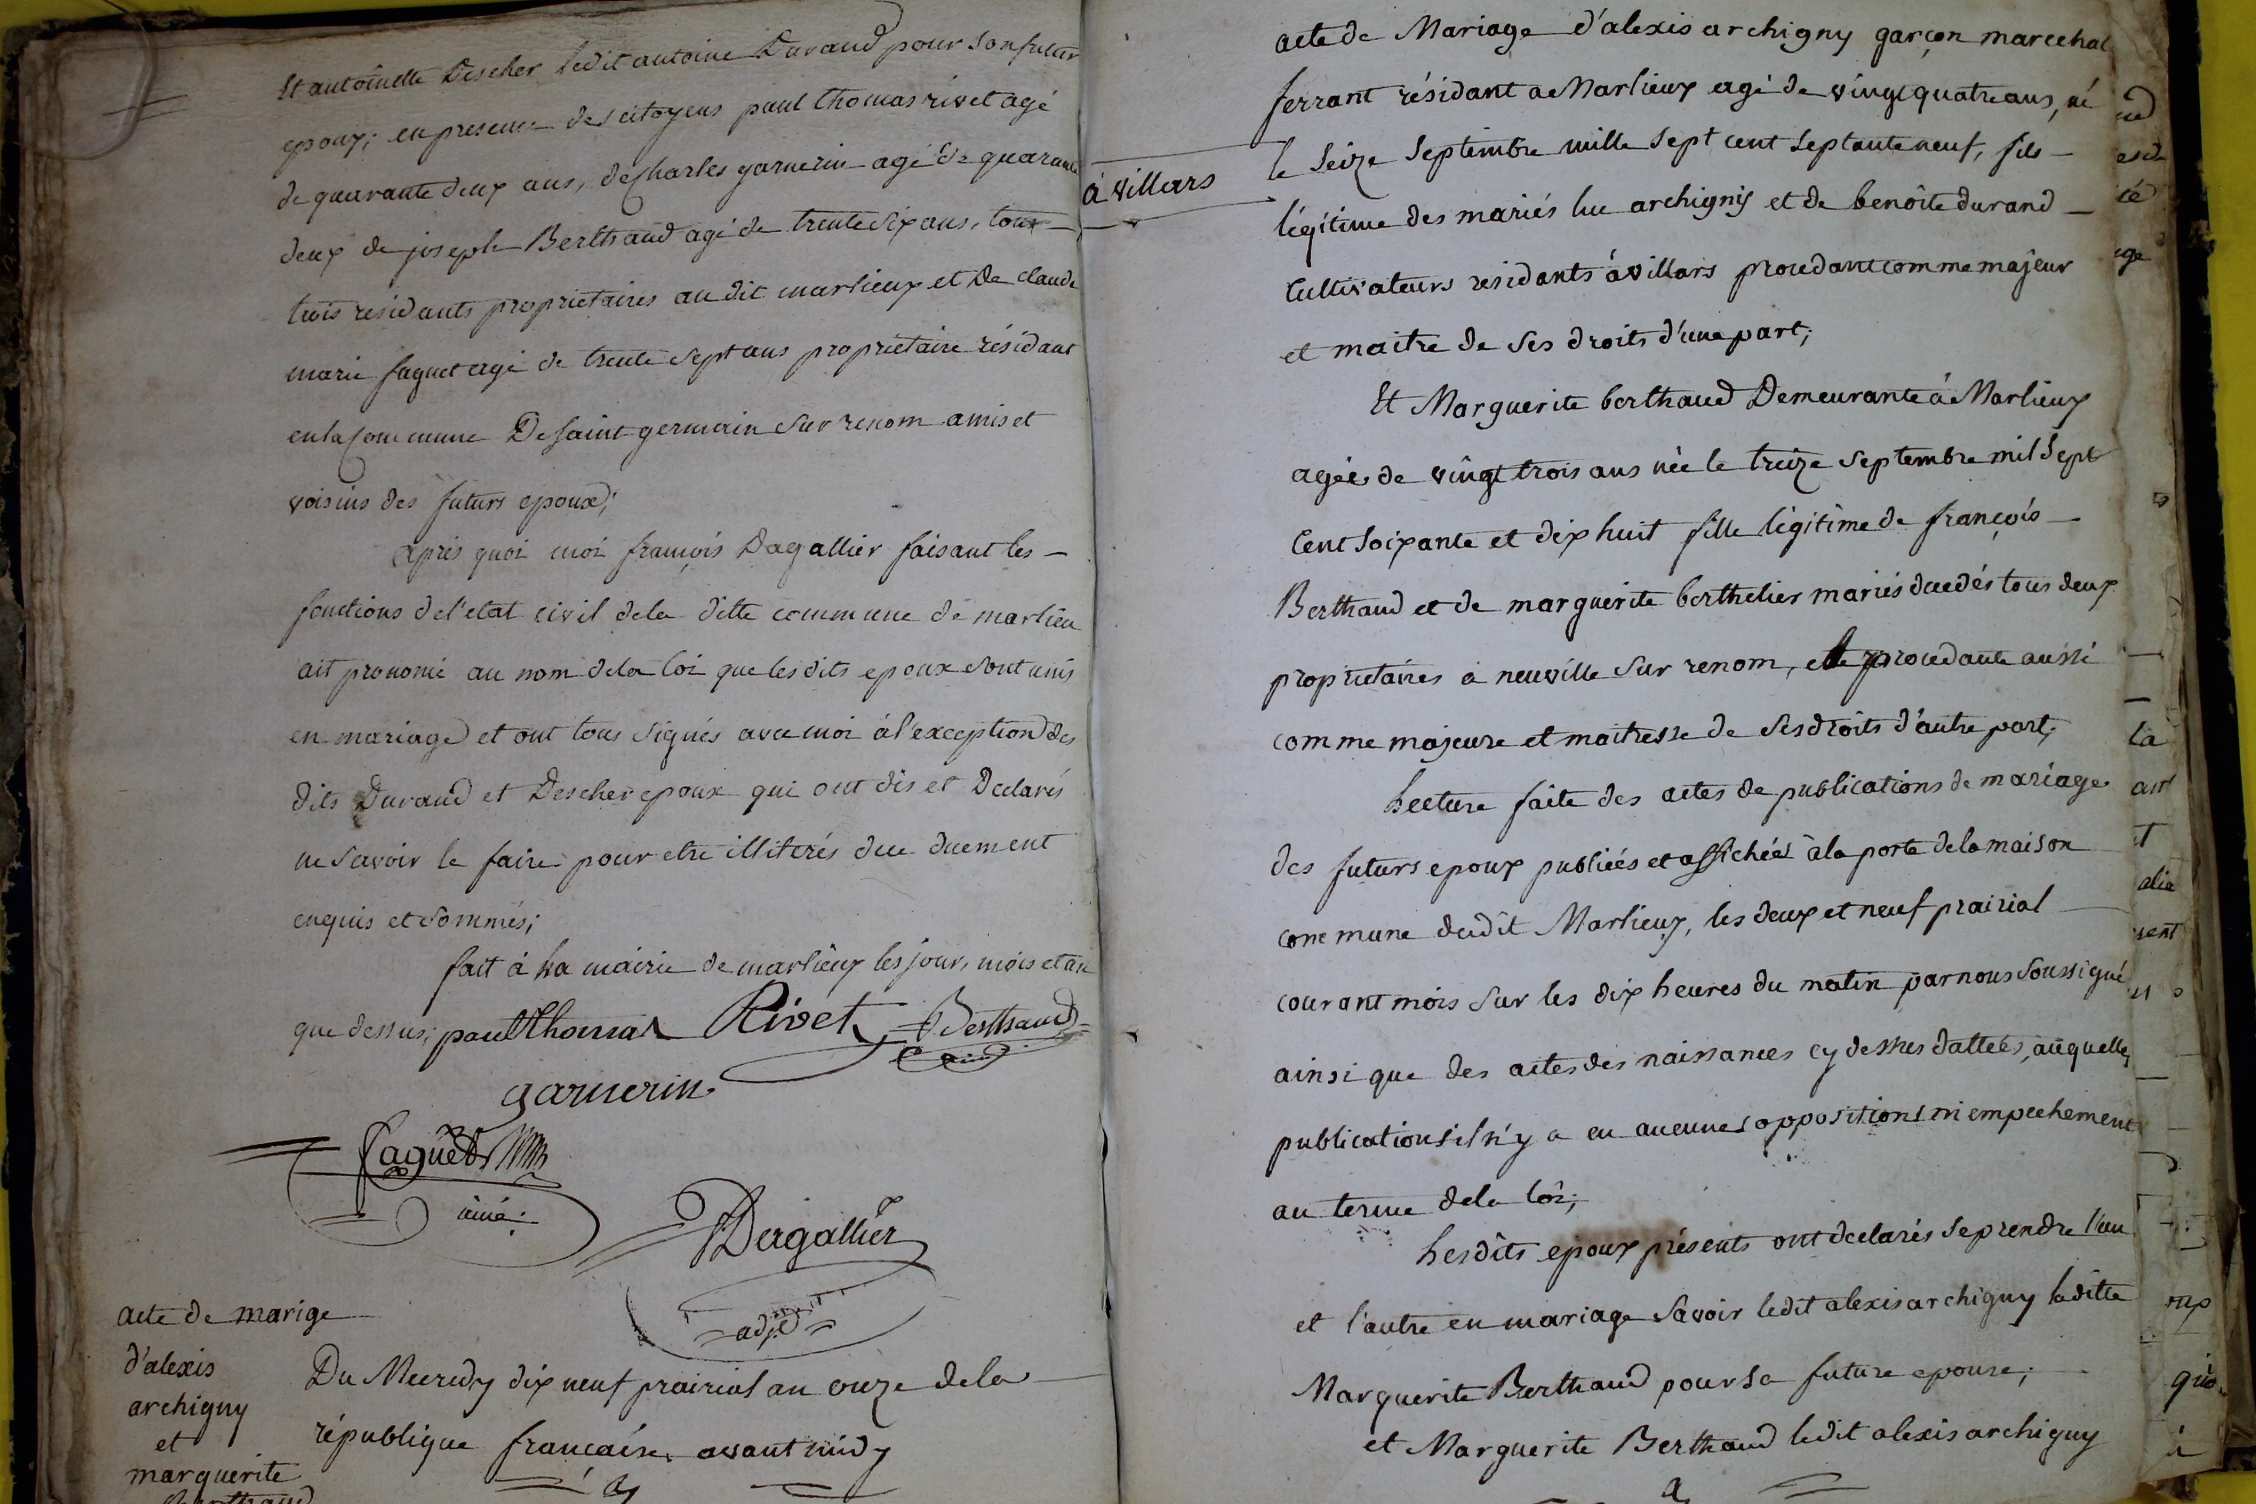 Et antoinette Descher ledit antoine Durand pour son futur
epoux; en presence des citoyens paul thomas rivet agé
de quarante deux ans, de Charles garnerin agé de quarante
deux de joseph Berthaud agé de trente six ans, tous
trois residants proprietaires au dit marlieux et De claude
marie faguet agé de trente sept ans proprietaire résidant
en la Commune De saint germain sur renom amis et
voisins des futurs epoux;
après quoi moi françois Dagallier faisant les
fonctions de l'etat civil de la ditte commune de marlieu
ait prononcé au nom de la loi que les dits epoux sont unis
en mariage et ont tous signés avec moi à l'exception des
dits Durand et Descher epoux qui ont dis et Declarés
ne savoir le faire pour etre illiterés de ce duement
enquis et sommés;
fait à la mairie de marlieux les jour, mois et an
que dessus; paul thomas Rivet Berthaud
garnerin
faguet
ainé
Dagallier
adjt
acte de marige
d'alexis
archigny
et
marguerite
Berthaud
Du Mecredy dix neuf prairial an onze de la
république francaise avant midy
à villars
acte de Mariage d'alexis archigny garçon marechal
ferrant résidant a Marlieux agé de vingt quatre ans, né
le seize septembre mille sept cent septante neuf, fils
légitime des mariés luc archigny et de benoîte durand
Cultivateurs residants à villars procedant comme majeur
et maitre de ses droits d'une part;
Et Marguerite berthaud Demeurante à Marlieux
agée de vingt trois ans née le treize septembre mil sept
Cent soixante et dix huit fille légitime de françois
Berthaud et de marguerite berthelier mariés decedés tous deux
proprietaires à neuville sur renom, elle procedante aussi
comme majeure et maitresse de ses droits d'autre part;
Lecture faite des actes de publications de mariage
des futurs epoux publiées et affichées à la porte de la maison
commune dudit Marlieux, les deux et neuf prairial
courant mois sur les dix heures du matin par nous soussigné
ainsi que des actes des naissances cy dessus dattées, auquelles
publications il n'y a eu aucunes oppositions ni empechements
au terme de la loi;
Lesdits epoux présents ont declarés se prendre l'un
et l'autre en mariage savoir ledit alexis archigny laditte
Marguerite Berthaud pour sa future epouse;
et Marguerite Berthaud ledit alexis archigny